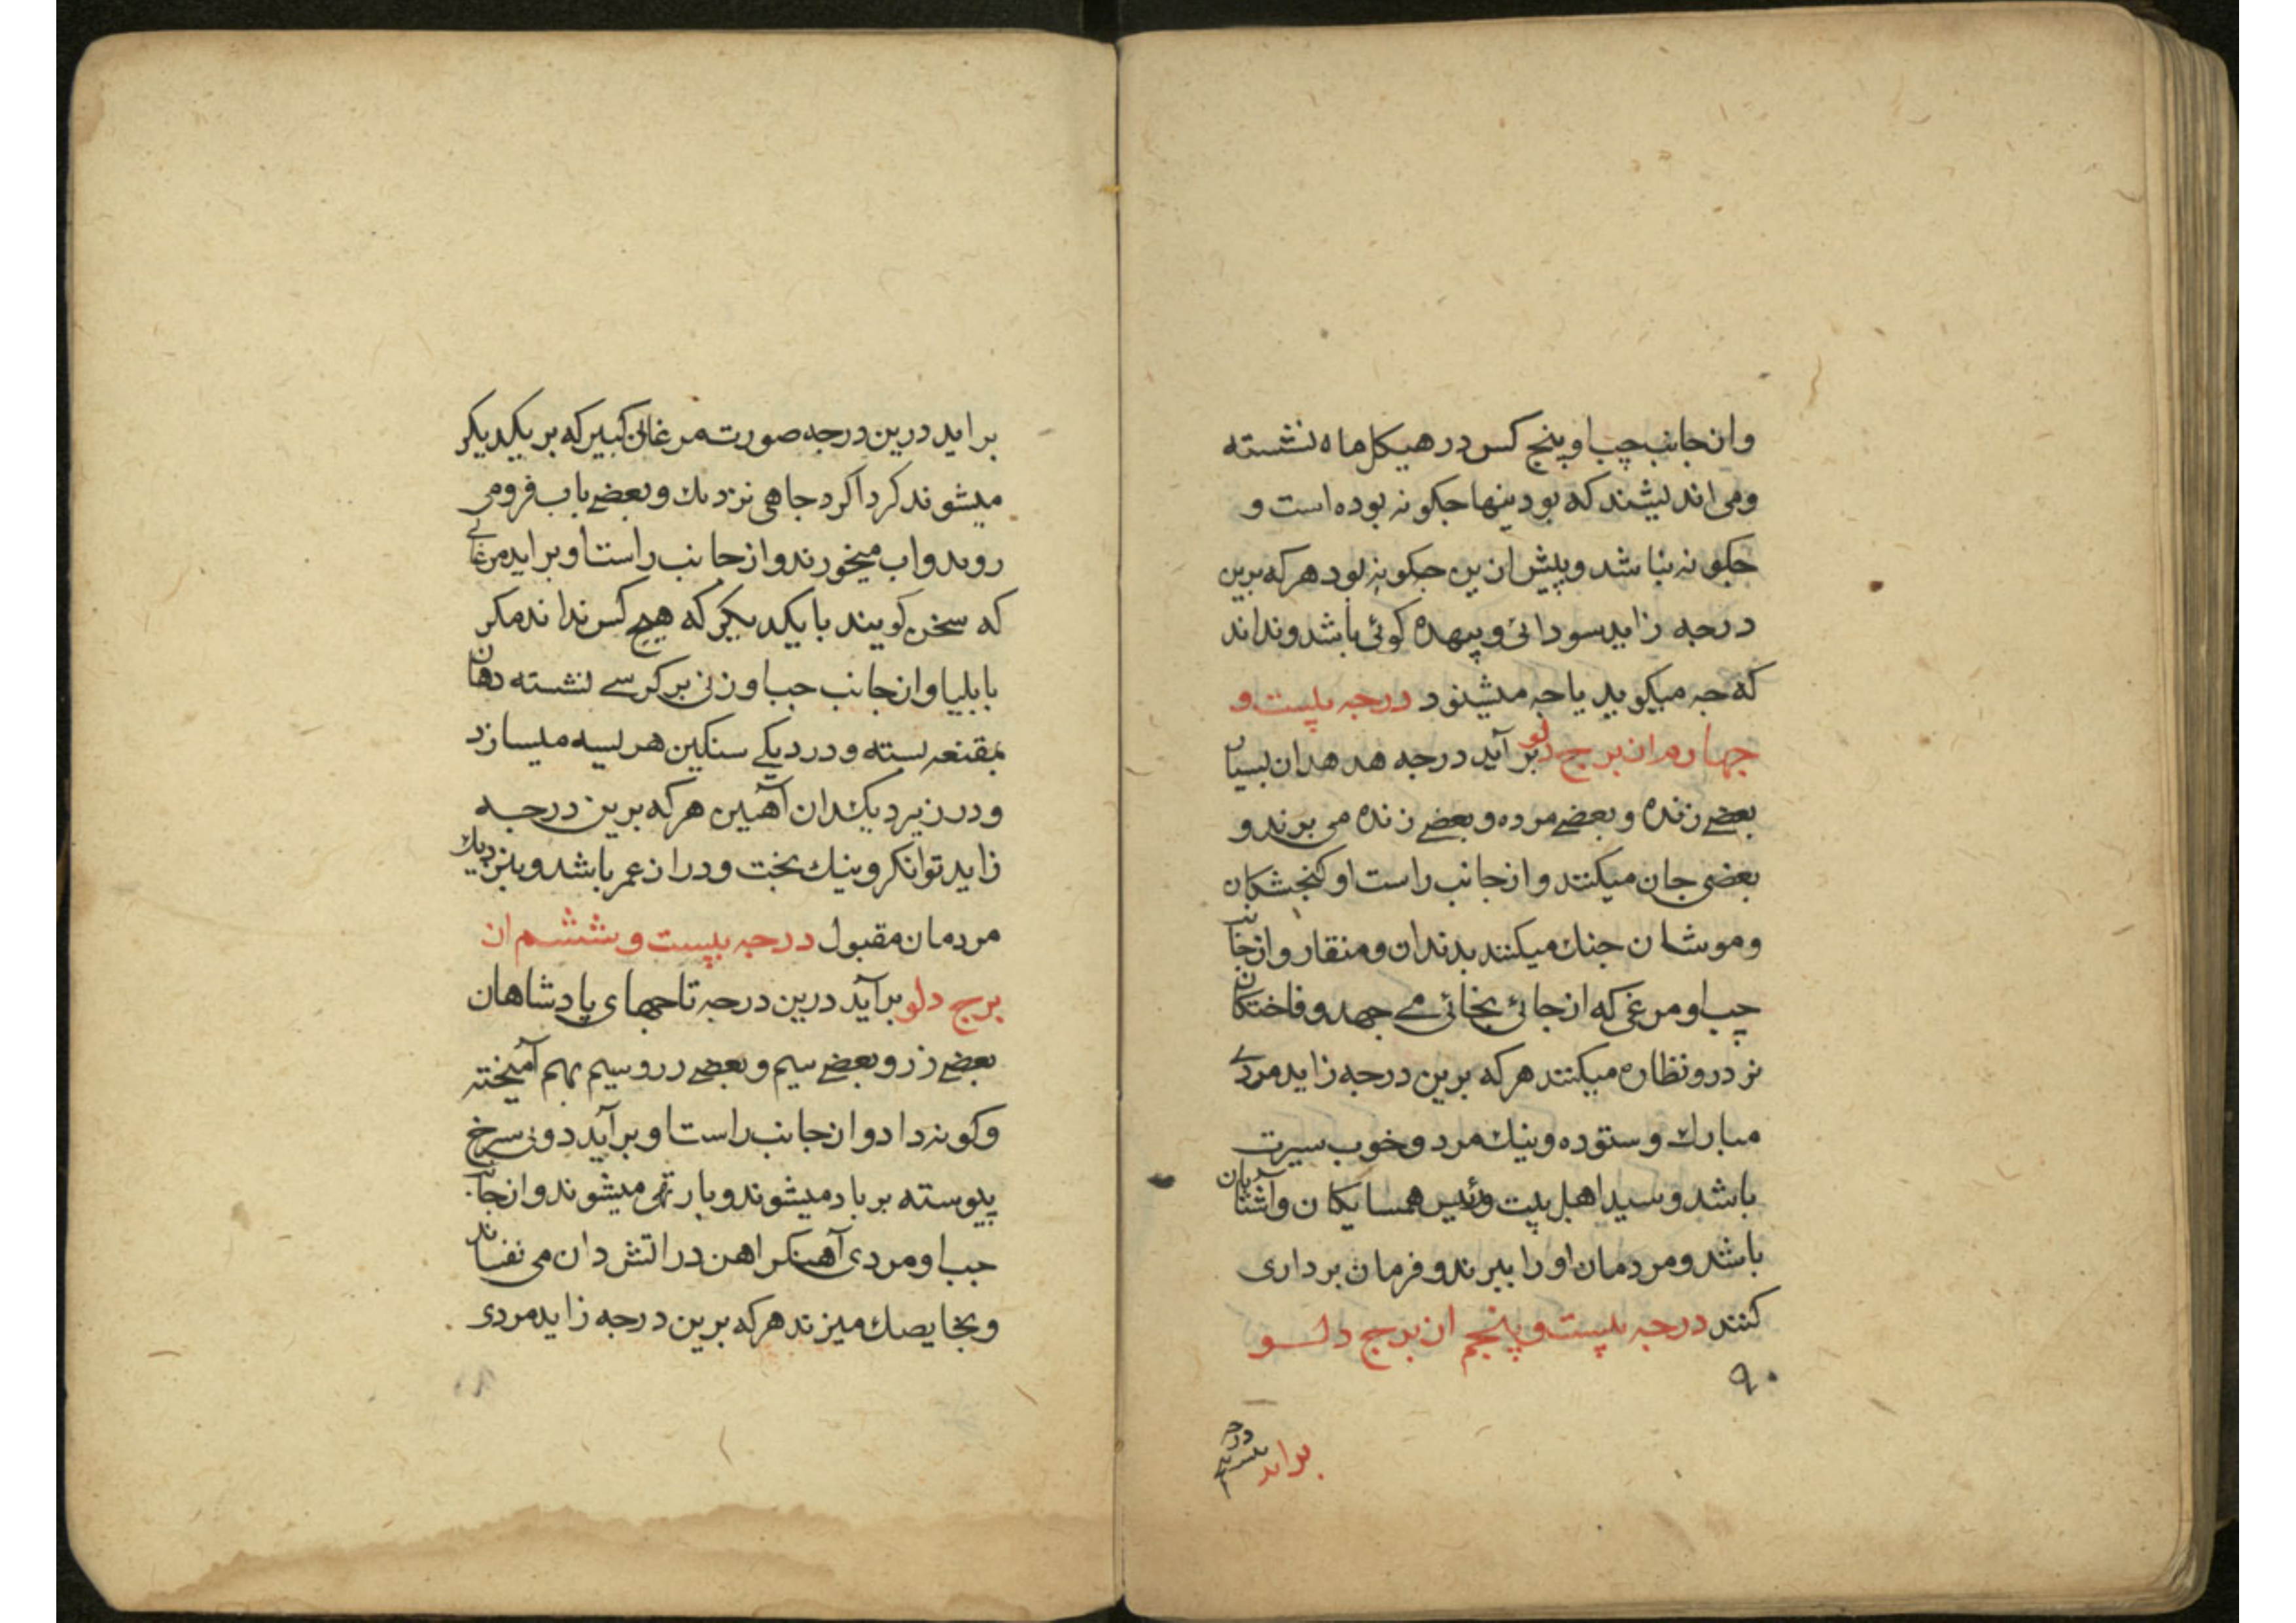 وان جانب چپ او پنج کس در هیکل ماه نشسته
و می اندیشند که بودینها جکونه بوده است و
جکونه نباشد و پیش ازین جکونه بود هر که برین
درجه زاید سودائی و بیهده کوئی باشد و نداند
که جه میکوید یا جه میشنود درجه بیست و
جهارم از برج دلو بر آید درجه هدهدان بسیار
بعضے زنده و بعضے مرده و بعضے زنده می برند و
بعضی جان میکنند و از جانب راست او کنجشکان
و موشان جنك میکنند بدندان و منقار و از جانب
چپ او مرغی که از جائ بخائی مے جهد و فاختکان
نر درو نظاره میکنند هر که برین درجه زاید مردے
مبارك و ستوده و نیك مرد و خوب سیرت
باشد و سید اهل بیت و رئیس همسایکان و آشنایان
باشد و مردمان او را ببرند و فرمان برداری
کنند درجه بیست و پنجم از برج دلو
۹۰
براید
بر اید درین درجه صورت مرغان کبیر که بر یکدیکر
میشوند کرداکرد جاهی نزدیك و بعضے باب فرو می
روید و اب میخورند و از جانب راست او بر اید مرغانے
که سخن کویند با یکدیکر که هیچ کس نداند مکر
بابلیا و از جانب جب او زنی بر کرسے نشسته دهان
بمقنعه بسته و در دیکے سنکین هریسه میسازد
و در زیر دیکدان آهنین هر که برین درجه
زاید توانکر و نیك بخت و دراز عمر باشد و بنزدیك
مردمان مقبول درجه بیست و ششم از
برج دلو بر آید درین درجه تاجهای پادشاهان
بعضے زر و بعضے سیم و بعضے زر و سیم بهم آمیخته
و کونه دادو از جانب راست او بر آید دو سرخ
پیوسته بر باد میشوند و بار تهی میشوند و از جانب
جب او مردی آهنکر اهن در اتش دان می نفتاند
و بخایصك میزند هر که برین درجه زاید مردی